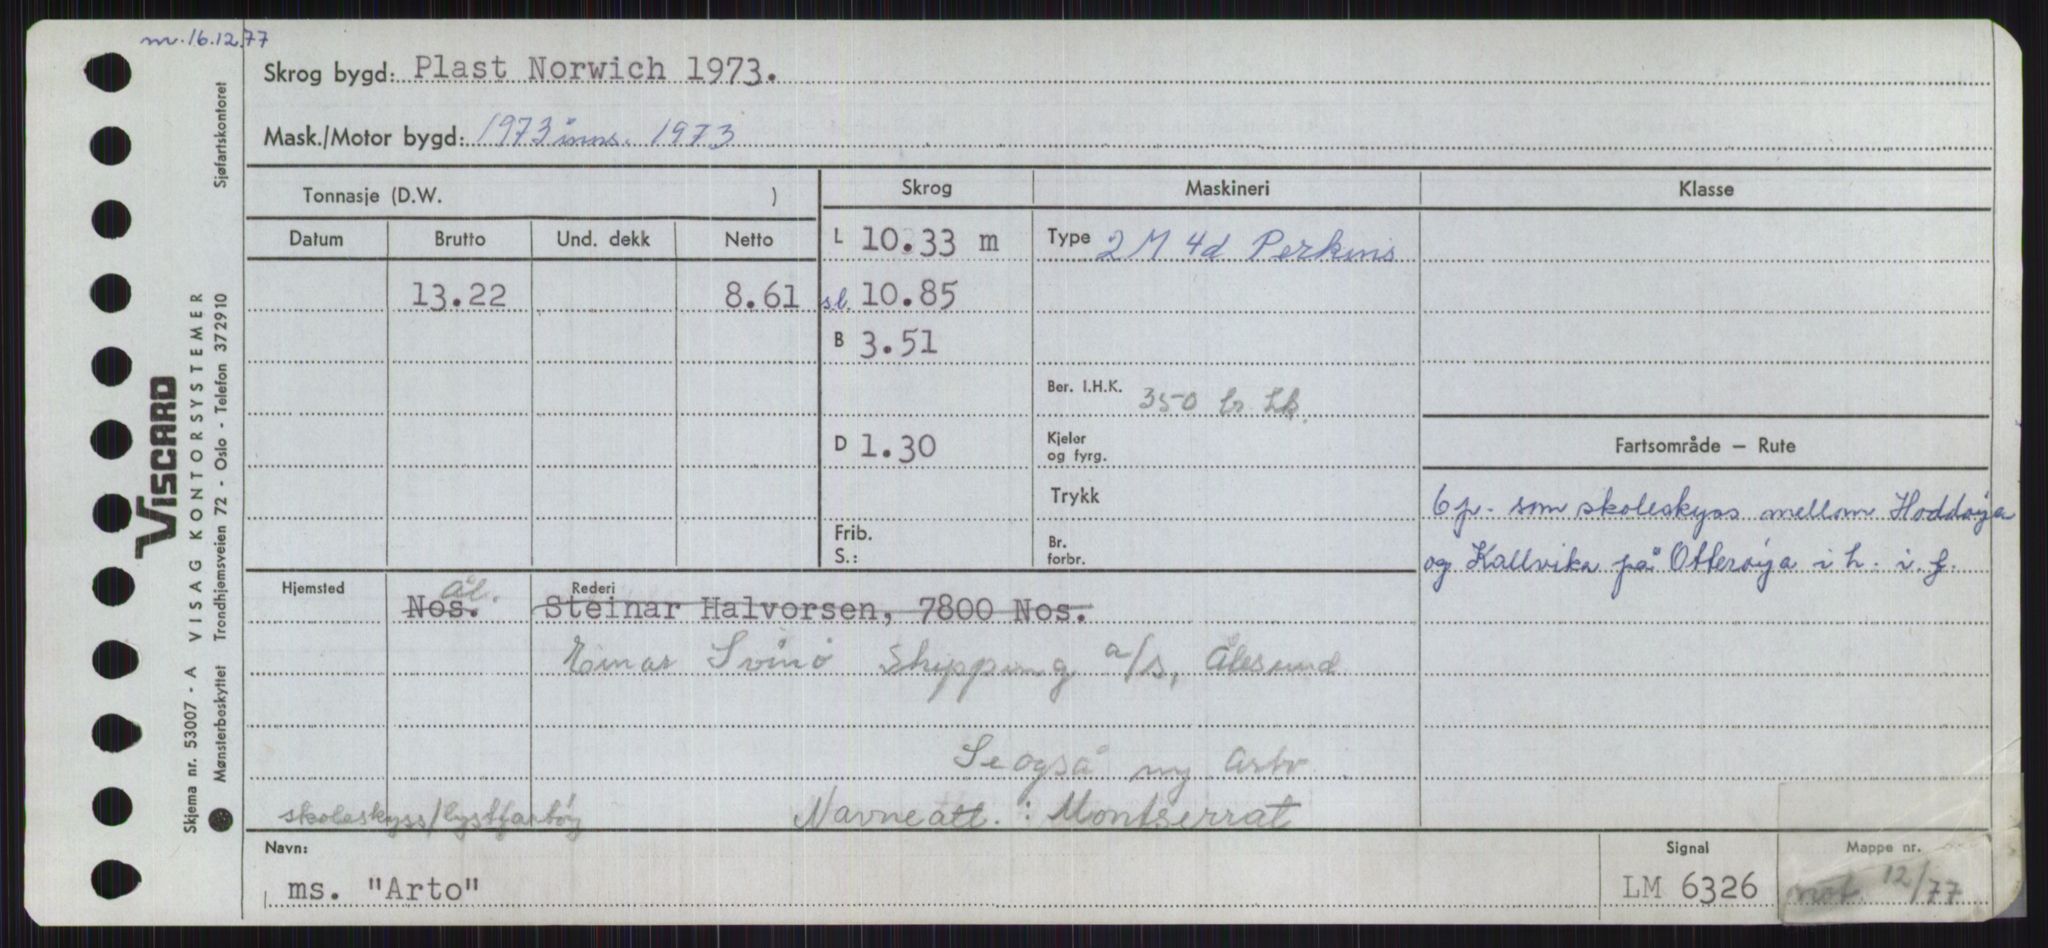 m. 16.12.77
Skrog bygd: Plast Norwich 1973.
Mask./Motor bygd: 1973 inns. 1973
Tonnasje (D.W. )
Skrog
Maskineri
Klasse
Datum Brutto Und. dekk Netto
L 10.33 m
Type 2 M 4d Perkins
13.22 8.61
s.l. 10.85
B 3.51
Ber. I.H.K. 350
D 1.30
Kjeler og fyrg.
Fartsområde — Rute
Trykk
6 p. som skoleskyss mellom Hoddøya
Frib.
S.:
Br.
forbr.
og Kallvika på Otterøya i h. i f.
Hjemsted Nos. Ål.
Rederi
Steinar Halvorsen, 7800 Nos.
Einar Svinø Shipping a/s, Ålesund
Se også ny Arto
skoleskyss/lystfartøy
Navneatt. : Montserrat
Navn:
ms. "Arto"
Signal
LM 6326
Mappe nr.
mot 12/77
Sjøfartskontoret
VISCARD
VISAG KONTORSYSTEMER
Trondhjemsveien 72 - Oslo - Telefon 372910
Skjema nr. 53007 - A
Mønsterbeskyttet